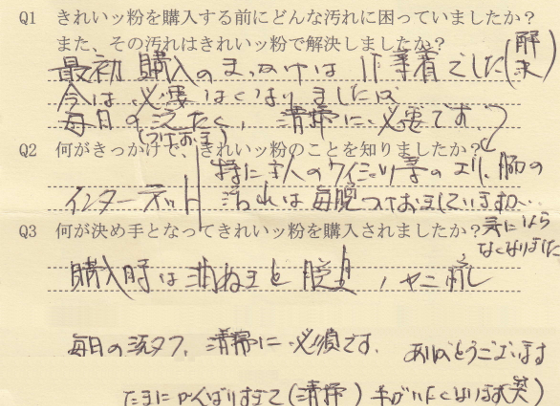 Q1 きれいッ粉を購入する前にどんな汚れに困っていましたか?
また、その汚れはきれいッ粉で解決しましたか?
最初 購入のきっかけは 作業着でした(解決)
今は必要はなくなりましたが
毎日の洗たく、清掃に必要です
(つけおき)
Q2 何がきっかけで、きれいッ粉のことを知りましたか?
特に主人のワイシャツ等のエリ、腕の
インターネット
汚れは毎晩つけおきしていますが…
気にならなくなりました
Q3 何が決め手となってきれいッ粉を購入されましたか?
購入時は油ね土と脱臭、ヤニ
毎日の洗タク、清掃に必須です.
ありがとうございます
たまにがんばりすぎて(清掃)手がいたくなります(笑)